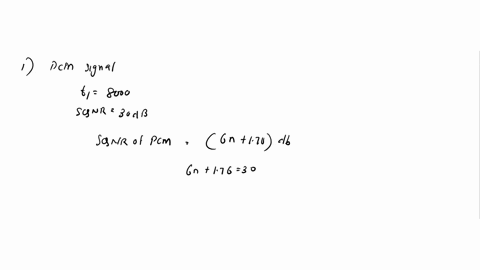 1) PCM signal
f1 = 8000
SQNR = 30 dB
SQNR of PCM = (6n + 1.70) db
6n + 1.76 = 30